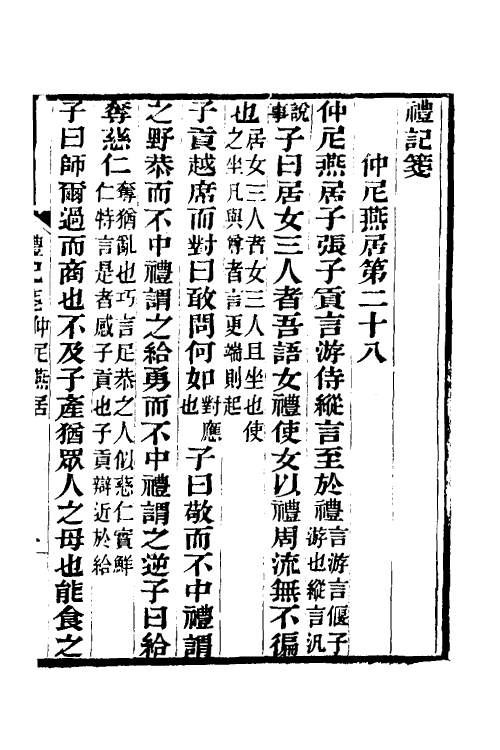 禮記箋
仲尼燕居第二十八
仲尼燕居子張子貢言游侍縱言至於禮言游言偃子游也縱言汎
說事子曰居女三人者吾語女禮使女以禮周流無不徧
也居女三人者女三人且坐也使之坐凡與尊者言更端則起
子貢越席而對曰敢問何如對應也子曰敬而不中禮謂
之野恭而不中禮謂之給勇而不中禮謂之逆子曰給
奪慈仁奪猶亂也巧言足恭之人似慈仁實鮮仁特言是者感子貢也子貢辯近於給
子曰師爾過而商也不及子產猶眾人之母也能食之
禮記箋 仲尼燕居 一